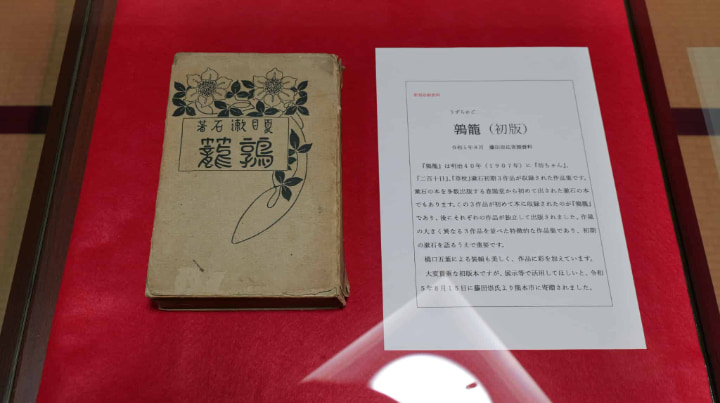 夏目漱石著
鶉籠
新規収蔵資料
うずらかご
鶉籠（初版）
令和５年８月　藤田崇氏寄贈資料
『鶉籠』は明治４０年（１９０７年）に『坊ちゃん』、
『二百十日』、『草枕』漱石初期３作品が収録された作品集です。
漱石の本を多数出版する春陽堂から初めて出された漱石の本
でもあります。この３作品が初めて本に収録されたのが『鶉籠』
であり、後にそれぞれの作品が独立して出版されました。作風
の大きく異なる３作品を並べた特徴的な作品集であり、初期
の漱石を語るうえで重要です。
橋口五葉による装幀も美しく、作品に彩を加えています。
大変貴重な初版本ですが、展示等で活用してほしいと、令和
５年８月１５日に藤田崇氏より熊本市に寄贈されました。